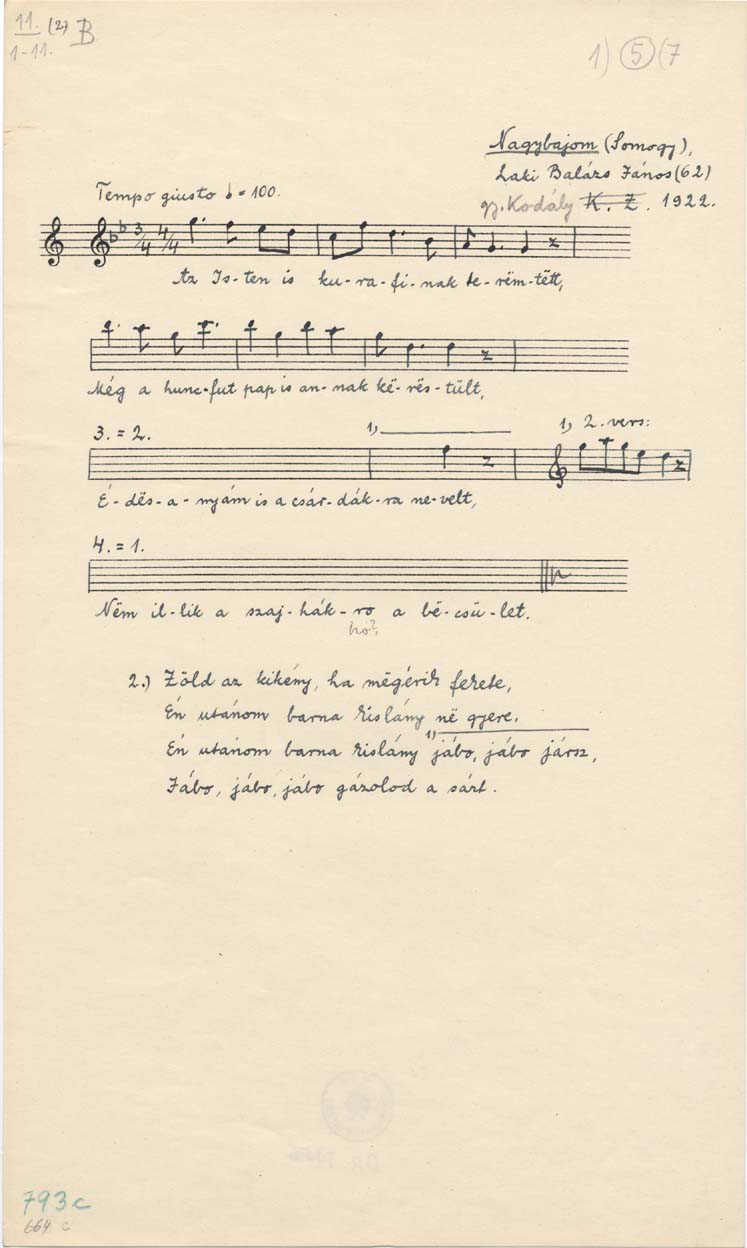 11. (2) B
1-11.
1) 5 (7
Nagybajom (Somogy),
Laki Balázs János (62)
gy. Kodály K. Z. 1922.
Tempo giusto ♩ = 100.
3/4 4/4
Az Is-ten is ku-ra-fi-nak te-rëm-tëtt,
Még a hunc-fut pap is an-nak kë-rës-tült,
3. = 2. 1) 1) 2. vers:
É-dës-a-nyám is a csár-dák-ra ne-velt,
4. = 1.
Nëm il-lik a szaj-hák-ro a bë-csü-let.
hó?
2.) Zöld az kikény, ha mëgérik fekete,
Én utánom barna kislány në gyere,
Én utánom barna kislány 1) jábo, jábo jársz,
Jábo, jábo, jábo gázolod a sárt.
793c
664 c